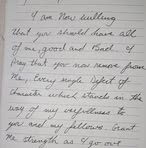 I am Now willing
that you should have all
of me, good and Bad. I
pray that you now remove from
Me, Every single Defect of
Character which stands in the
way of my usefullness to
you and my fellows. Grant
Me strength as I go out